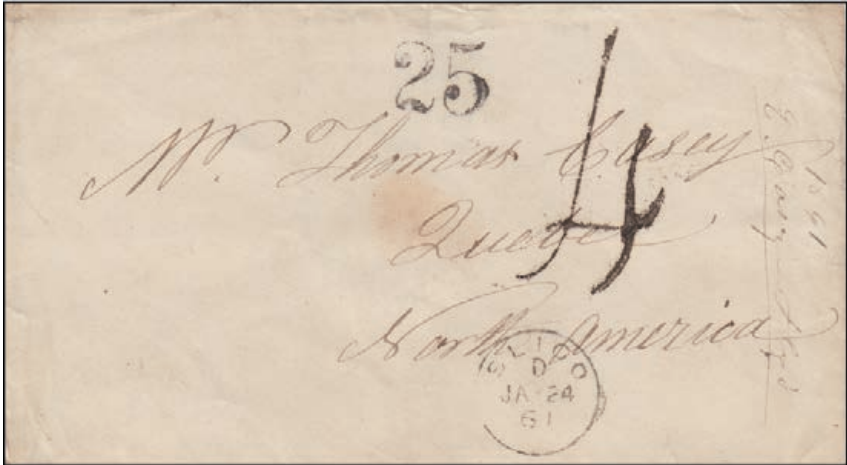 25
4
Mr. Thomas Casey
Quebec
North America
SLIGO
D
JA 24
61
1861